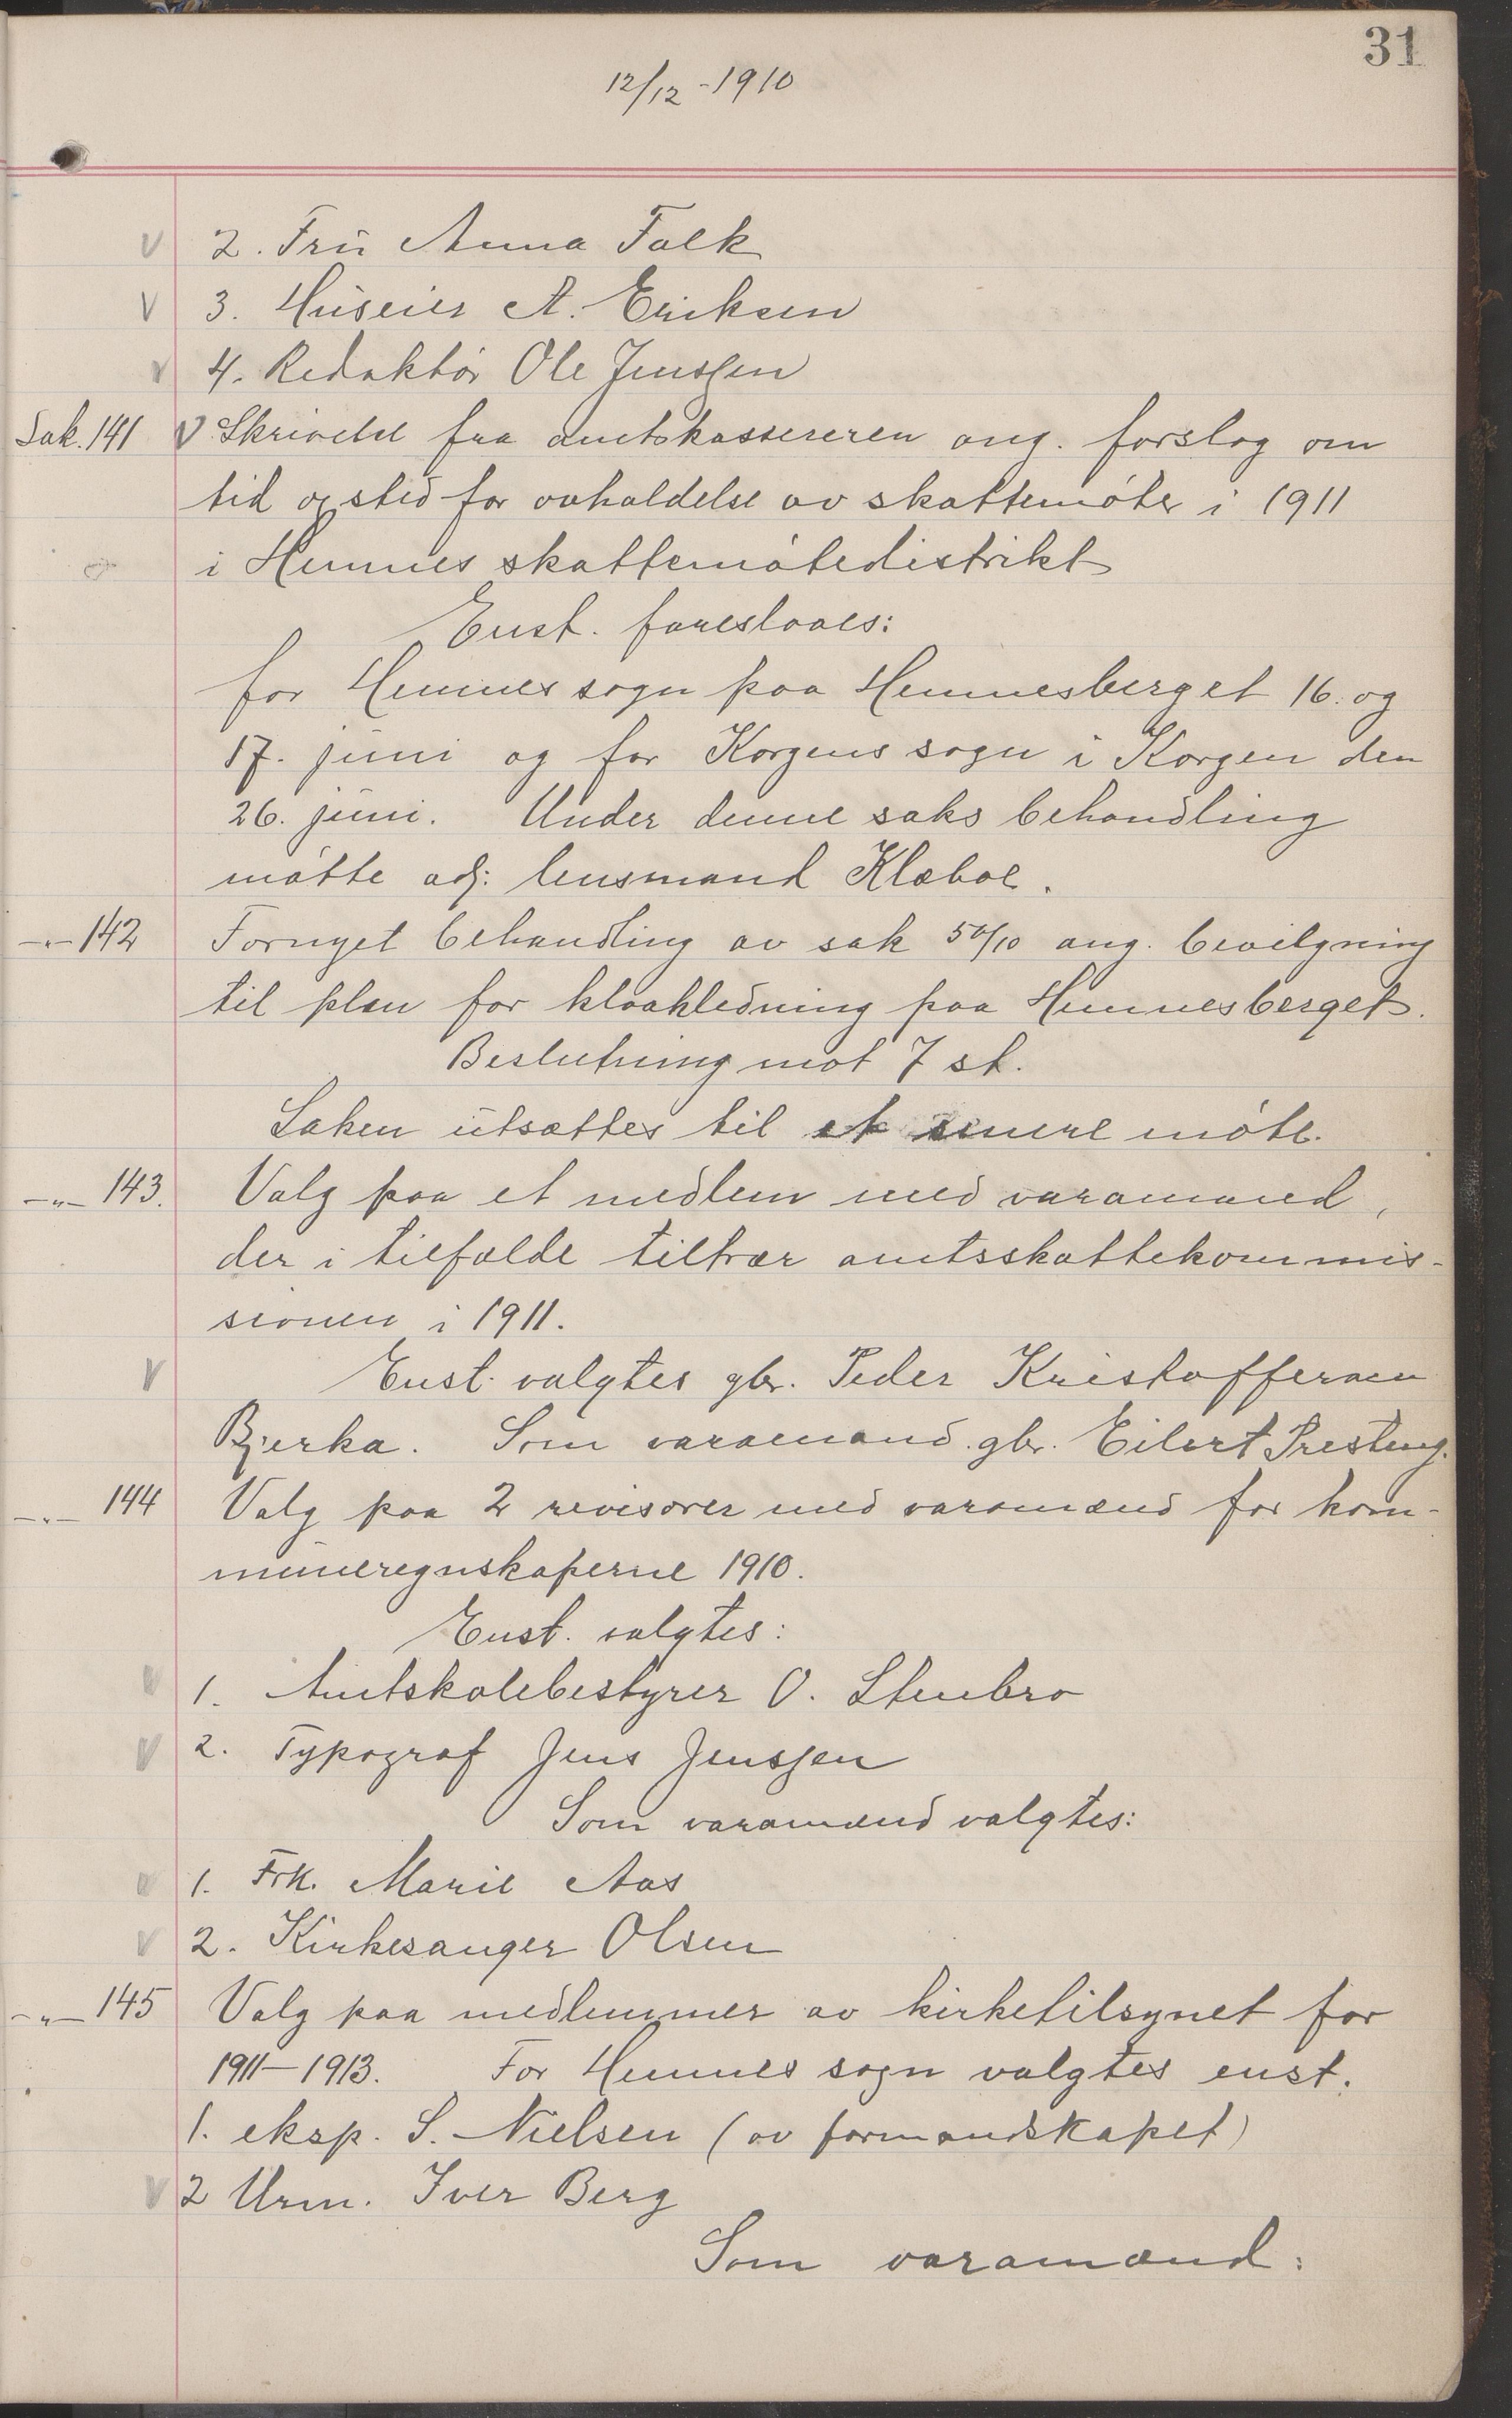 31
12/12 - 1910
2. Fru Anna Falk
3. Huseier A. Eriksen
4. Redaktör Ole Jenssen
Sak. 141 Skrivelse fra amtskassereren ang. forslag om
tid og sted for avholdelse av skattemöter i 1911
i Hemnes skattemötedistrikt
Enst. foreslaaes:
for Hemnes sogn paa Hemnesberget 16. og
17. juni og for Korgens sogn i Korgen den
26. juni. Under denne saks behandling
mötte adj. lensmand Klæboe.
-"- 142 Fornyet behandling av sak 50/10 ang. bevilgning
til plan for kloakledning paa Hemnesberget.
Beslutning mot 7 st.
Saken utsættes til et senere möte.
-"- 143. Valg paa et medlem med varamand,
der i tilfælde tiltrær amtsskattekommis-
sionen i 1911.
Enst. valgtes gbr. Peder Kristoffersen
Bjerka. Som varamand gbr. Eilert Presteng.
-"- 144 Valg paa 2 revisorer med varamænd for kom-
muneregnskaperne 1910.
Enst. valgtes:
1. Amtskolebestyrer O. Stenbro
2. Typograf Jens Jenssen
Som varamænd valgtes:
1. Frk. Marie Aas
2. Kirkesanger Olsen
-"- 145 Valg paa medlemmer av kirketilsynet for
1911-1913. For Hemnes sogn valgtes enst.
1. eksp. S. Nielsen (av formandskapet)
2 Urm. Iver Berg
Som varamænd: